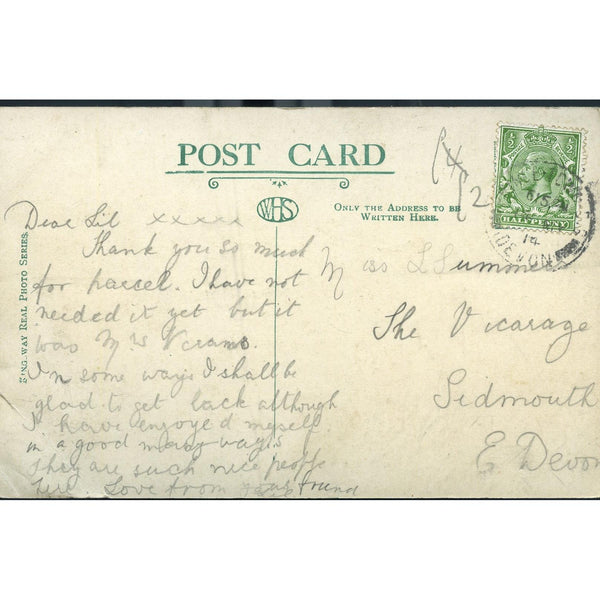 POST CARD
WHS
ONLY THE ADDRESS TO BE
WRITTEN HERE.
KINGSWAY REAL PHOTO SERIES.
½ ½
HALFPENNY
14
DEVON
Dear Lil xxxxx
Thank you so much
for parcel. I have not
needed it yet but it
was Mrs
In some ways I shall be
glad to get back although
I have enjoyed myself
in a good many ways
they are such nice people
here Love from your friend
Miss L Summer
The Vicarage
Sidmouth
E Devon